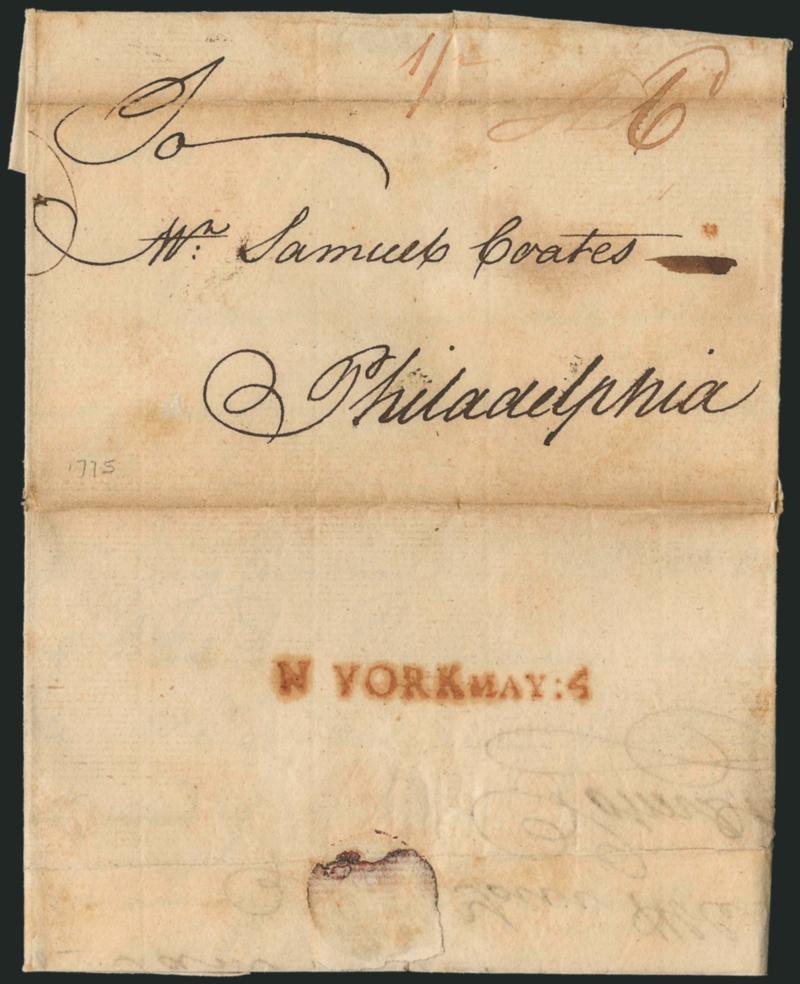 1/-
To
Mr: Samuel Coates
Philadelphia
1775
N YORK MAY:4